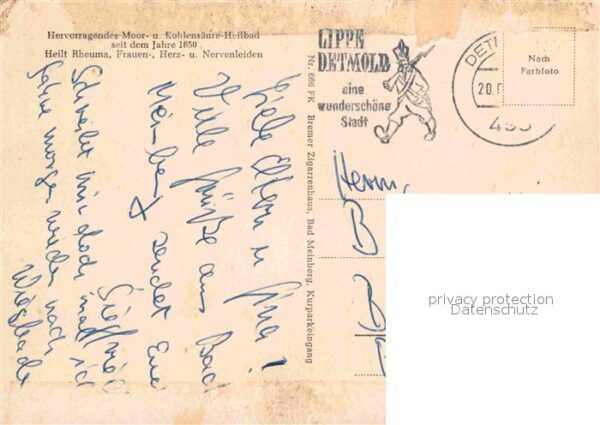 Hervorragendes Moor- u. Kohlensäure-Heilbad
seit dem Jahre 1650
Heilt Rheuma, Frauen-, Herz- u. Nervenleiden
Liebe Eltern u.
Viele Grüße aus Bad
Meinberg sendet Euch
Siegfried
Schreibt mir doch mal ich
fahre morgen wieder nach
Wiesbaden
Nr. 686 FK Bremer Zigarrenhaus, Bad Meinberg, Kurparkeingang
LIPPE
DETMOLD
eine
wunderschöne
Stadt
DETM
20.
493
Nach
Farbfoto
Herrn
privacy protection
Datenschutz